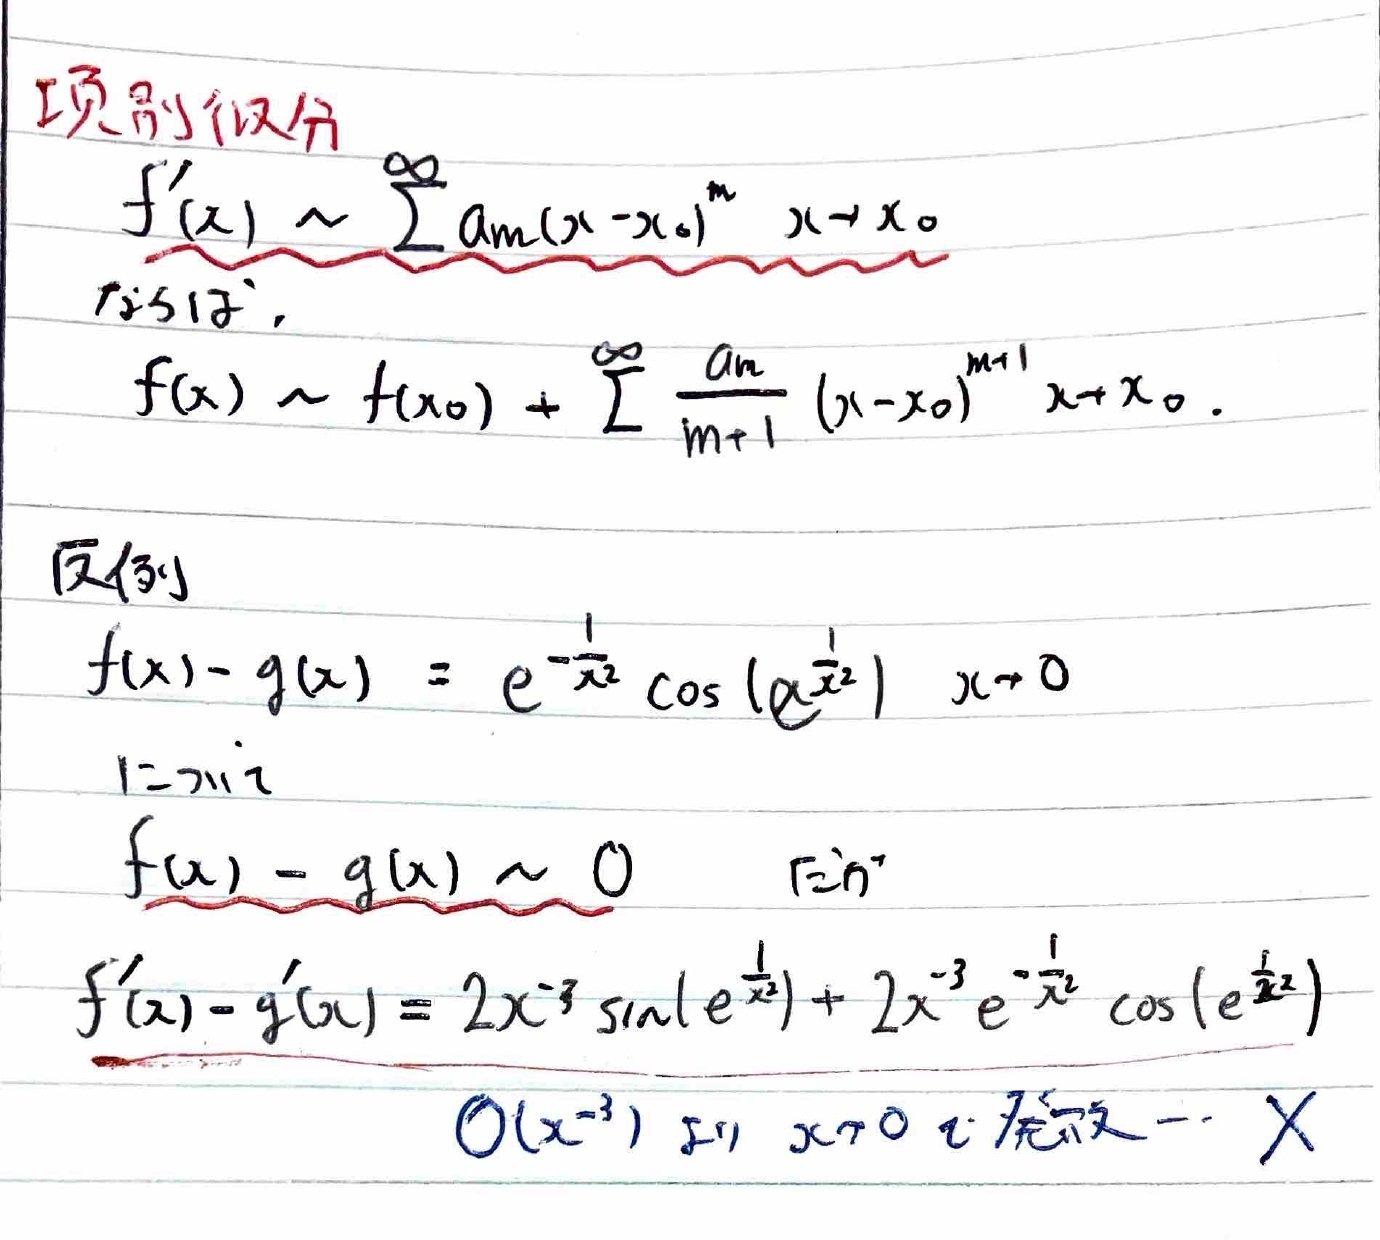 項別微分
f'(x) ~ ∑^∞ am(x-x₀)^m x→x₀
ならば,
f(x) ~ f(x₀) + ∑^∞ am/(m+1) (x-x₀)^(m+1) x→x₀.
反例
f(x) - g(x) = e^(-1/x²) cos(e^(1/x²)) x→0
について
f(x) - g(x) ~ 0 だが
f'(x) - g'(x) = 2x⁻³ sin(e^(1/x²)) + 2x⁻³ e^(-1/x²) cos(e^(1/x²))
O(x⁻³) より x→0 で発散 … X